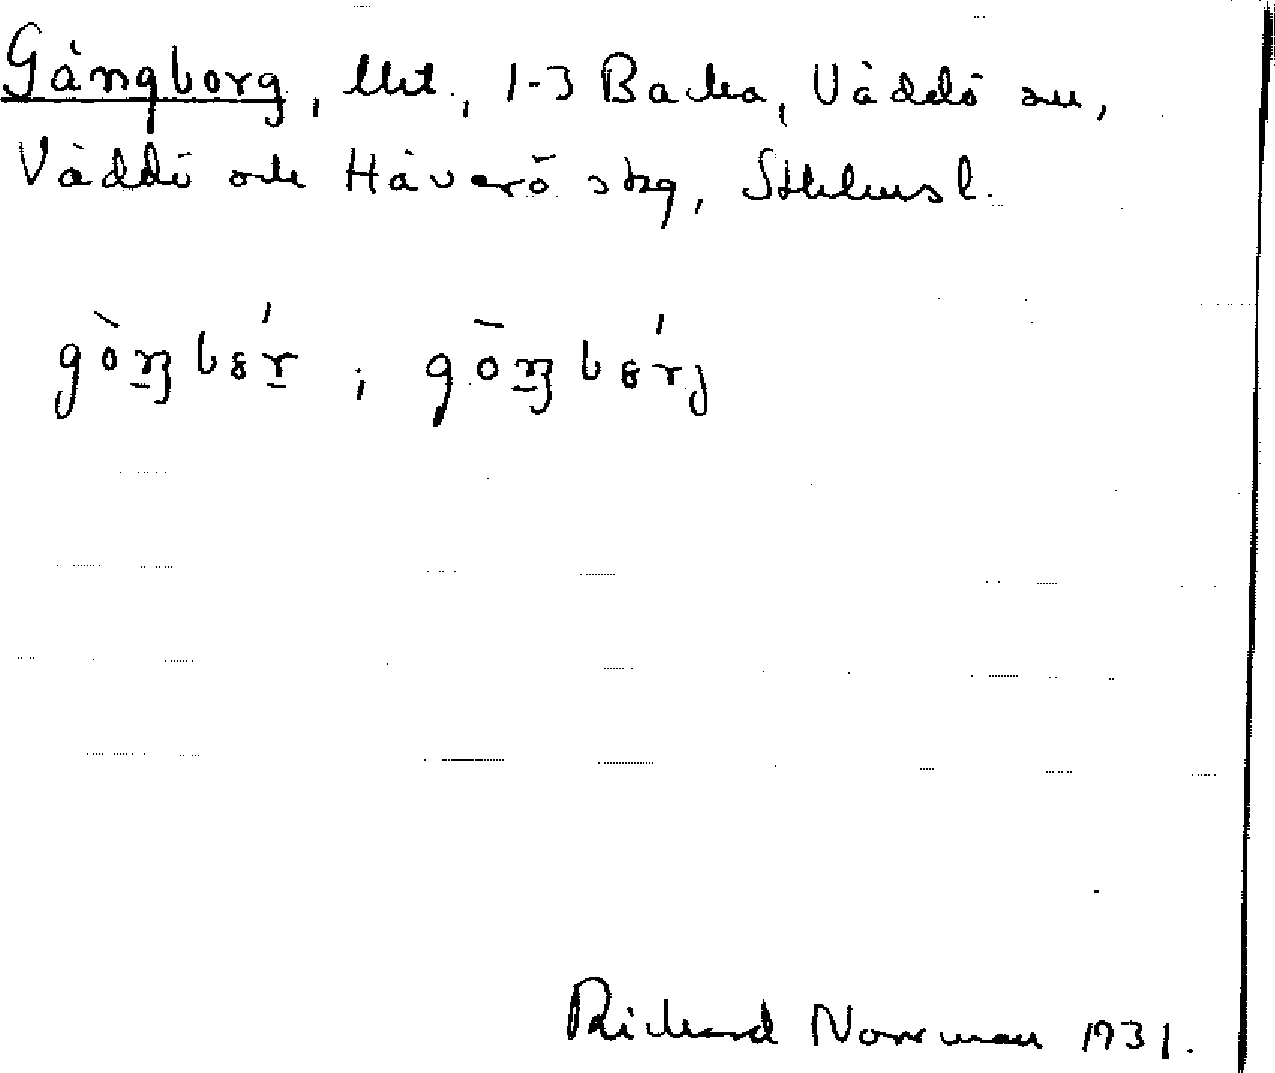 Gångborg, lht., 1-3 Backa, Väddö sn,
Väddö och Häverö skg, Sthlms l.
gòŋbɞ́r ; gòŋbɞ́rj
Richard Norrman 1931.